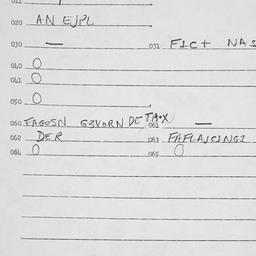 011
020 AN EJPL
030 — 031 FICT NAS
040 O
041 O
050 O
060 FAGOSN G3VORN DE TAOX 061 —
062 DER 063 FAFLAJCINGI
064 O 065 O